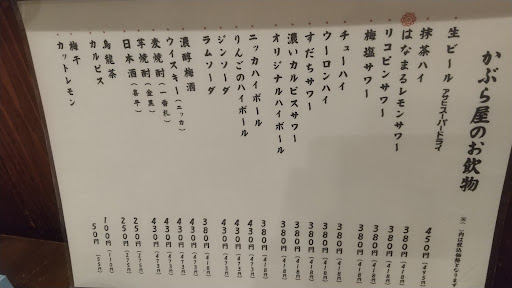 かぶら屋のお飲物
※( )内は税込価格となります
生ビール アサヒスーパードライ 450円(495円)
抹茶ハイ 380円(418円)
はなまるレモンサワー 380円(418円)
リコピンサワー 380円(418円)
梅塩サワー 380円(418円)
チューハイ 380円(418円)
ウーロンハイ 380円(418円)
すだちサワー 380円(418円)
濃いカルピスサワー 380円(418円)
オリジナルハイボール 380円(418円)
ニッカハイボール 380円(418円)
りんごのハイボール 430円(473円)
ジンソーダ 430円(473円)
ラムソーダ 430円(473円)
濃醇梅酒 380円(418円)
ウイスキー(ニッカ) 430円(473円)
麦焼酎(一番札) 430円(473円)
芋焼酎(金黒) 430円(473円)
日本酒(喜平) 430円(473円)
烏龍茶 250円(275円)
カルピス 250円(275円)
梅干 100円(110円)
カットレモン 50円(55円)